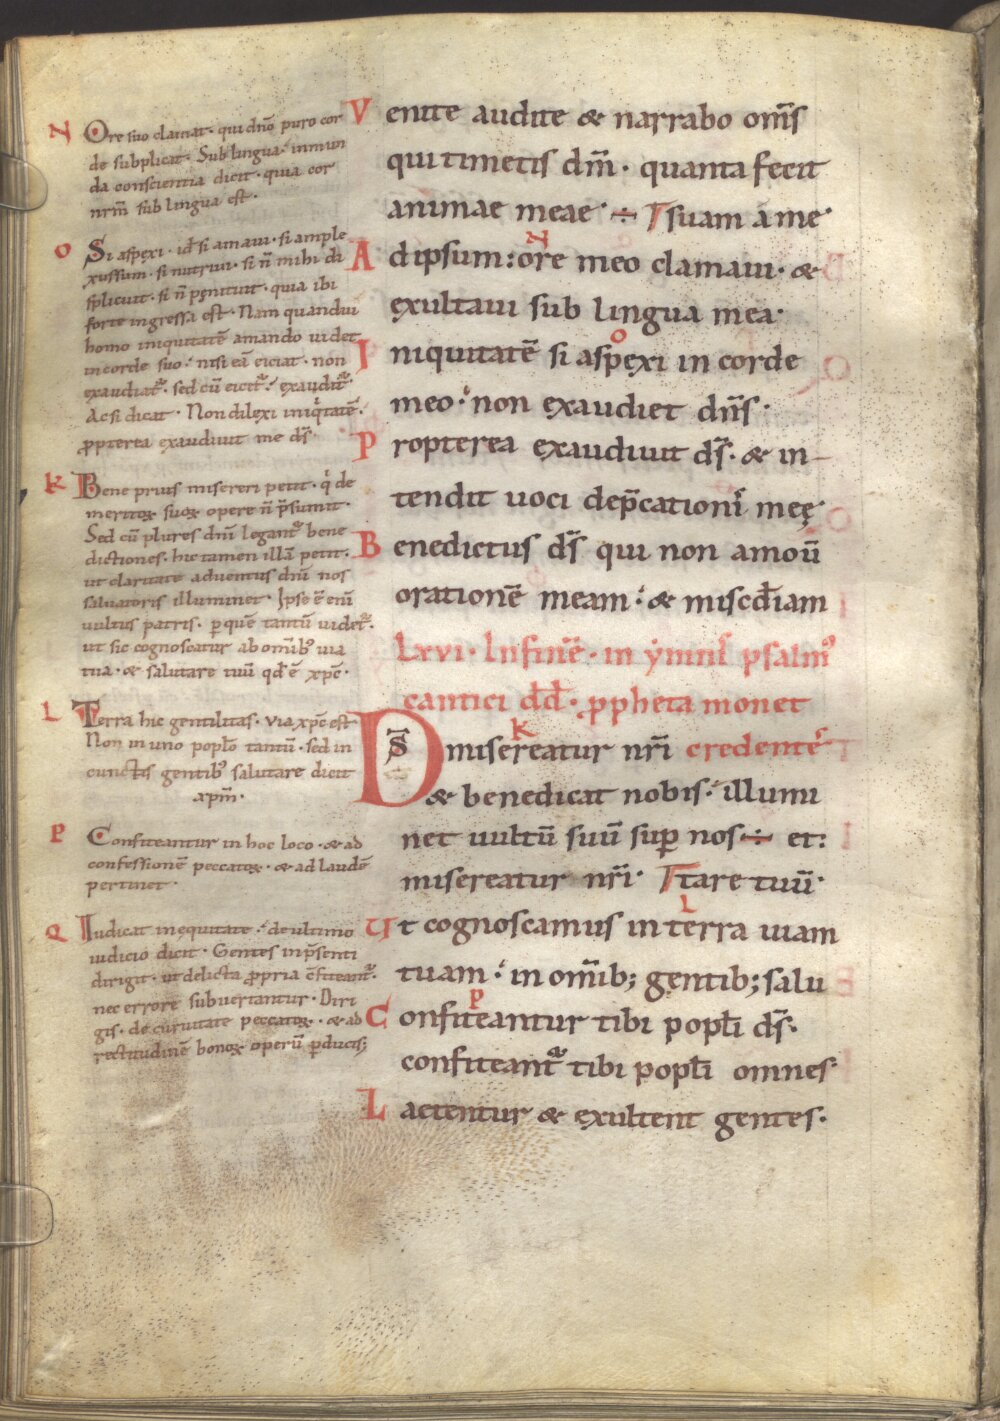 N Ore suo clamat· qui dño puro cor
de supplicat· Sub lingua· inmun
da conscientia dicit· quia cor
nr̃m sub lingua est·
O Si aspexi· id ẽ si amaui· si ample
xussum· si nutriui· si ñ mihi di
splicuit· si ñ penituit· quia ibi
forte ingressa est· Nam quandiu
homo iniquitatẽ amando uidet
in corde suo· nisi eã eiciat· non
exaudiat᷑· sed cũ eicit᷑· exaudit᷑·
Ac si dicat· Non dilexi iniq̇tatẽ·
ꝓpterea exaudiuit me ds̃·
K Bene prius misereri petit· q̇ de
meritoꝝ suoꝝ opere ñ p̃sumit·
Sed cũ plures dnĩ legant᷑ bene
dictiones· hic tamen illã petit·
ut claritate aduentus dnĩ nos
saluatoris illuminet· Ipse ẽ enĩ
uultus patris· ꝑ quẽ tantũ uidet᷑·
ut sic cognoscatur ab omĩbꝰ uia
tua· & salutare tuũ qđ ẽ xpẽ·
L Terra hic gentilitas· via xpẽ est
Non in uno popl̃o tantũ· sed in
cunctis gentibꝰ salutare dicit
xpm̃·
P Confiteantur in hoc loco· & ad
confessionẽ peccatoꝝ· & ad laudẽ
pertinet·
Q Iudicat in ęquitate· de ultimo
iudicio dicit· Gentes in p̃senti
dirigit· ut delicta ꝓpria cõfiteant᷑·
nec errore subuertantur· Diri
gis· de curuitate peccatoꝝ· & ad
rectitudinẽ bonoꝝ operũ ꝑducis;
Venite audite & narrabo om̃s
qui timetis dm̃· quanta fecit
animae meae· ÷ suam a me·
N
Ad ipsum: ore meo clamaui· &
exultaui sub lingua mea·
O
Iniquitatẽ si aspexi in corde
meo· non exaudiet dñs·
Propterea exaudiuit ds̃· & in-
tendit uoci dep̃cationis meę·
Benedictus ds̃ qui non amouit
orationẽ meam· & miscđiam
LXVI· In finẽ· in ẏmnis psalmꝰ
cantici dđ· ꝓpheta monet
K
DS̃ misereatur nr̃i credentes
& benedicat nobis· illumi
net uultũ suũ sup̱ nos ÷ et:
misereatur nr̃i· tare tuũ·
L
Ut cognoscamus in terra uiam
tuam· in om̃ib; gentib; salu
P
Confiteantur tibi popl̃i ds̃·
confiteant᷑ tibi popl̃i omnes·
Laetentur & exultent gentes·